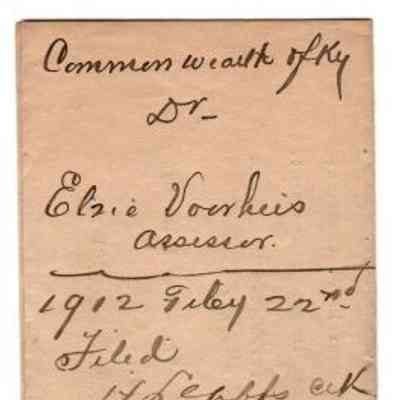 Commonwealth of Ky
Dr-
Elzie Voorheis
assessor.
1912 Feby 22nd
Filed
clk